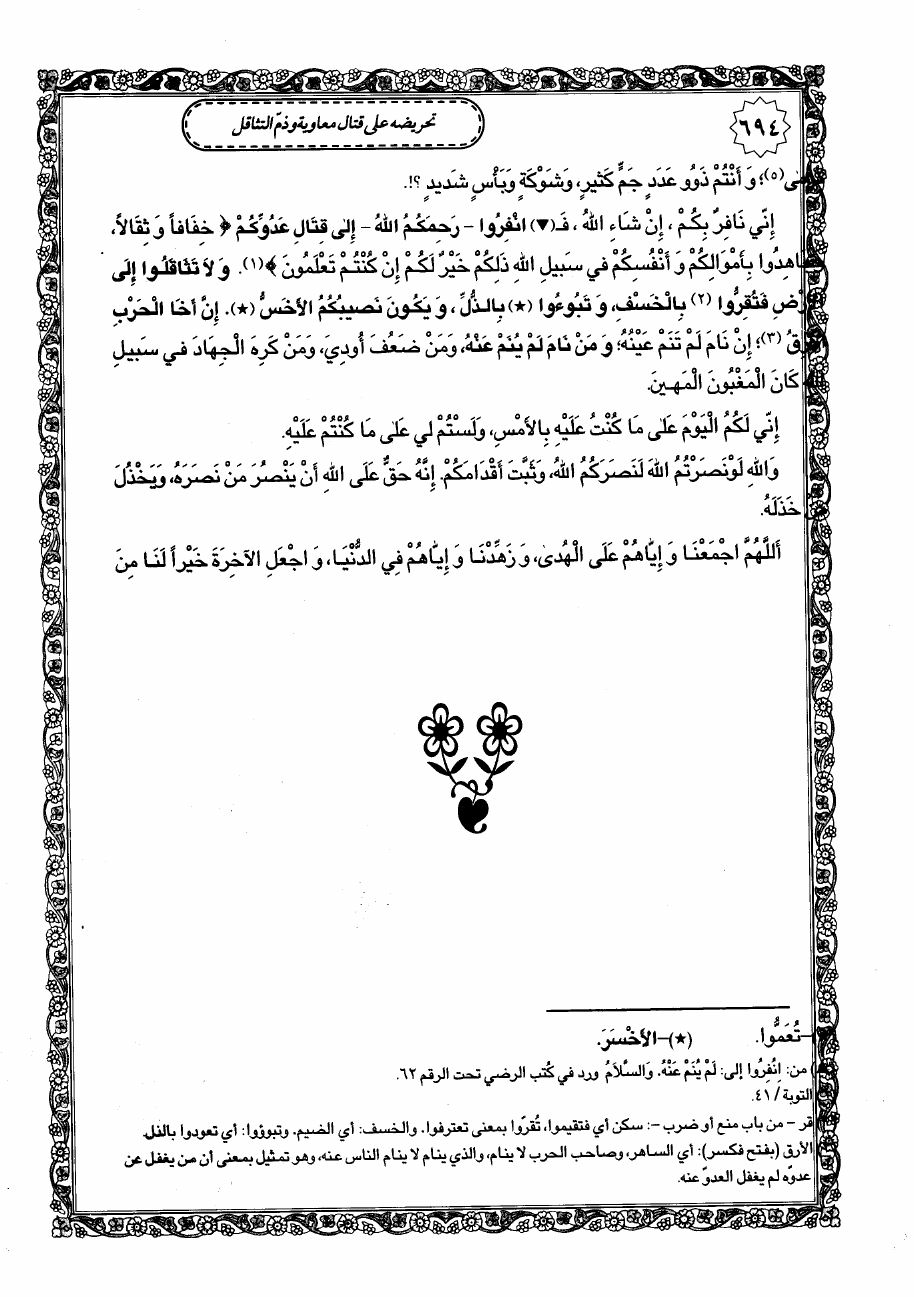 ٦٩٤
تحريضه على قتال معاوية وذمّ التثاقل
(٥)؛ وَ أَنْتُمْ ذَوُو عَدَدٍ جَمٍّ كَثيرٍ، وَشَوْكَةٍ وَبَأْسٍ شَديدٍ ؟!.
إِنّي نَافِرٌ بِكُمْ ، إِنْ شَاءَ اللهُ ، فَـ(▼) انْفِرُوا – رَحِمَكُمُ اللهُ – إِلى قِتَالِ عَدُوِّكُمْ ﴿ خِفَافاً وَ ثِقَالاً،
بِأَمْوَالِكُمْ وَ أَنْفُسِكُمْ في سَبيلِ اللهِ ذَلِكُمْ خَيْرٌ لَكُمْ إِنْ كُنْتُمْ تَعْلَمُونَ ﴾(١). وَ لاَ تَثَاقَلُوا إِلَى
فَتُقِرُّوا (٢) بِالْخَسْفِ، وَ تَبُوءُوا (★) بِالذُّلِّ، وَ يَكُونَ نَصيبُكُمُ الأَخَسُّ (★). إِنَّ أَخَا الْحَرْبِ
(٣)؛ إِنْ نَامَ لَمْ تَنَمْ عَيْنُهُ؛ وَ مَنْ نَامَ لَمْ يُنَمْ عَنْهُ، وَمَنْ ضَعُفَ أُودِيَ، وَمَنْ كَرِهَ الْجِهَادَ في سَبيلِ
كَانَ الْمَغْبُونَ الْمَهينَ.
إِنّي لَكُمُ الْيَوْمَ عَلى مَا كُنْتُ عَلَيْهِ بِالأَمْسِ، وَلَسْتُمْ لي عَلى مَا كُنْتُمْ عَلَيْهِ.
وَاللهِ لَوْ نَصَرْتُمُ اللهَ لَنَصَرَكُمُ اللهُ، وَثَبَّتَ أَقْدَامَكُمْ. إِنَّهُ حَقٌّ عَلَى اللهِ أَنْ يَنْصُرَ مَنْ نَصَرَهُ، وَيَخْذُلَ
خَذَلَهُ.
أَللَّهُمَّ اجْمَعْنَا وَ إِيَّاهُمْ عَلَى الْهُدى، وَ زَهِّدْنَا وَ إِيَّاهُمْ فِي الدُّنْيَا، وَ اجْعَلِ الآخِرَةَ خَيْراً لَنَا مِنَ
–تُعَمُّوا. (★)–الأَخْسَرَ.
من: اِنْفِرُوا إلى: لَمْ يُنَمْ عَنْهُ. وَالسَّلاَمُ ورد في كُتب الرضي تحت الرقم ٦٢.
التوبة / ٤١.
قر – من باب منع أو ضرب –: سكن أي فتقيموا، تُقرّوا بمعنى تعترفوا. والخسف: أي الضيم. وتبوؤوا: أي تعودوا بالذل.
الأرق (بفتح فكسر): أي الساهر، وصاحب الحرب لا ينام، والذي ينام لا ينام الناس عنه، وهو تمثيل بمعنى أن من يغفل عن
عدوّه لم يغفل العدوّ عنه.